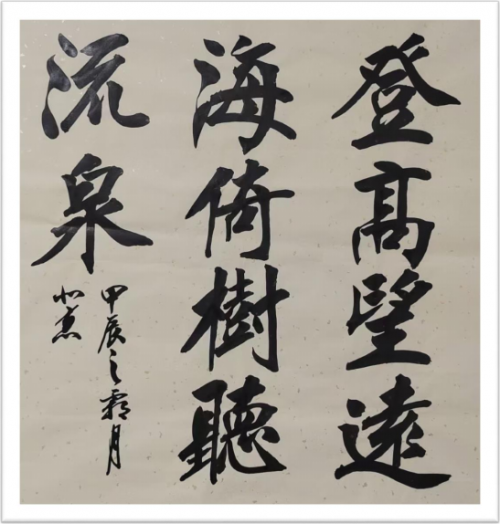 登高望遠
海倚樹聽
流泉
甲辰之霜月